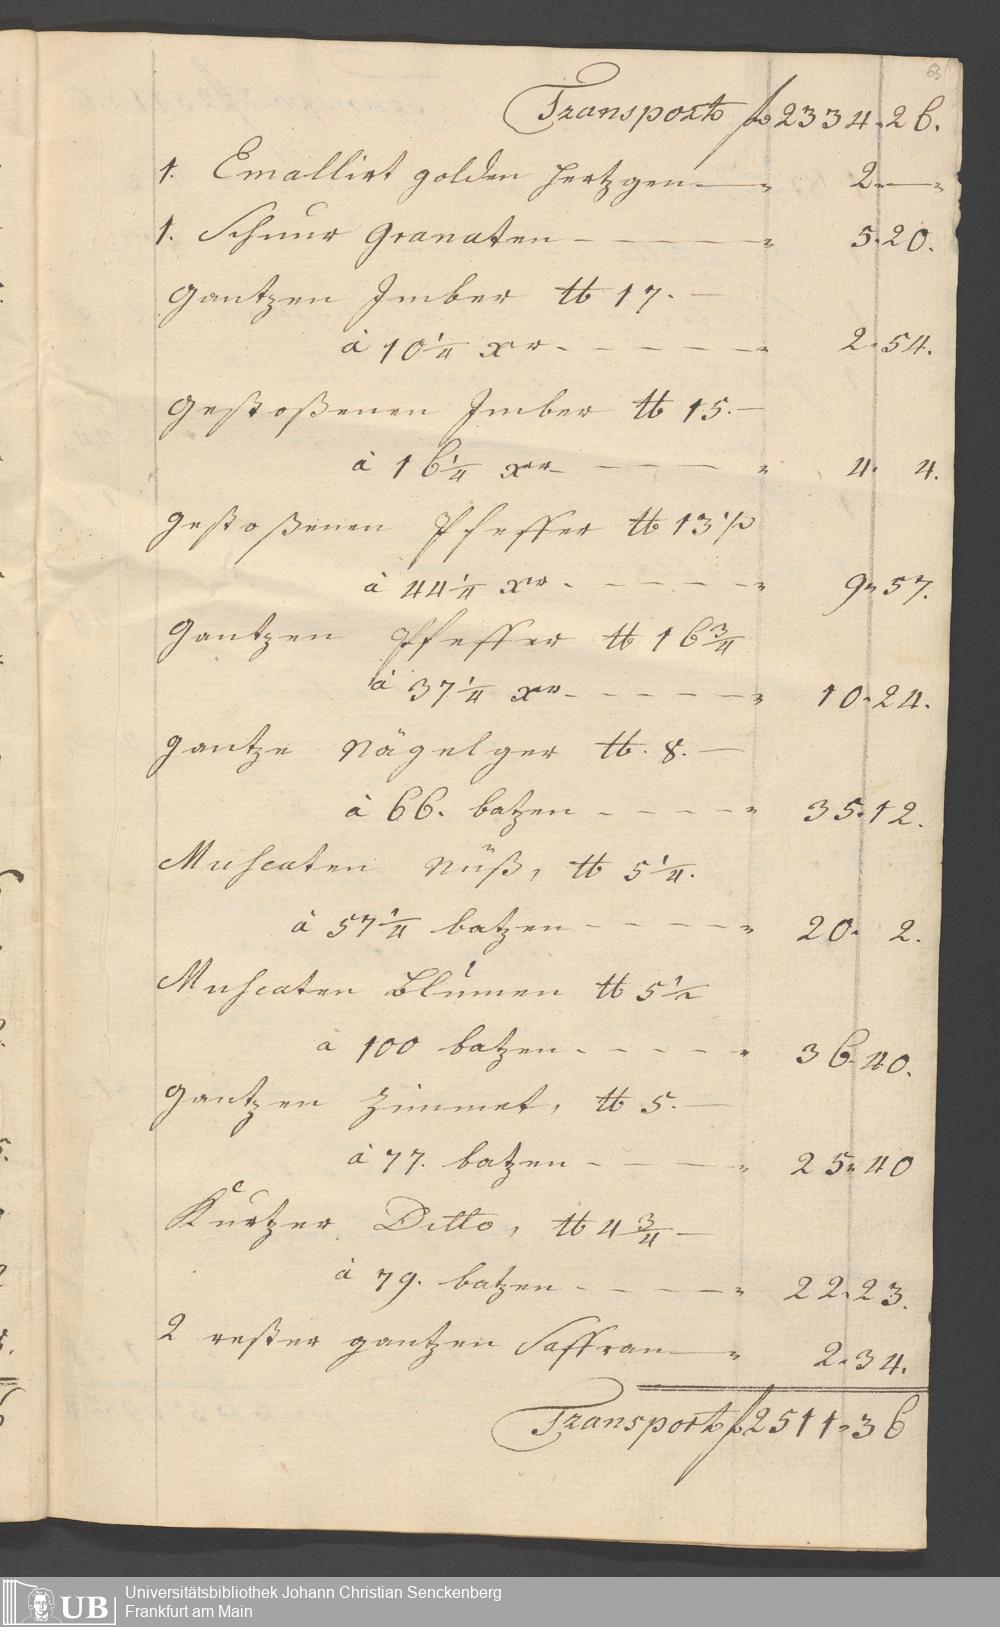 63
Transport fl 2334.26.
1. Emallirt golden Hertzgen — " 2. — "
1. Schnur Granaten – – – – " 5.20.
Gantzen Imber ℔ 17. —
à 10 1/4 xr – – – – – " 2.54.
Gestoßenen Imber ℔ 15. —
à 16 1/4 xr – – – – " 4. 4.
Gestoßenen Pfeffer ℔ 13 1/2
à 44 1/4 xr – – – – – " 9.57.
Gantzen Pfeffer ℔ 16 3/4
à 37 1/4 xr – – – – – " 10.24.
Gantze Nägelger ℔. 8. —
à 66. batzen – – – – " 35.12.
Muscaten Nüß, ℔ 5 1/4.
à 57 1/4 batzen – – – – " 20. 2.
Muscaten Blumen ℔ 5 1/2
à 100 batzen – – – – " 36.40.
Gantzen Zimmet, ℔ 5. —
à 77. batzen – – – " 25.40
Kurtzer Ditto, ℔ 4 3/4 —
à 79. batzen – – – – " 22.23.
2 rester gantzen Saffran — " 2.34.
Transport fl 2511.36
UB Universitätsbibliothek Johann Christian Senckenberg
Frankfurt am Main